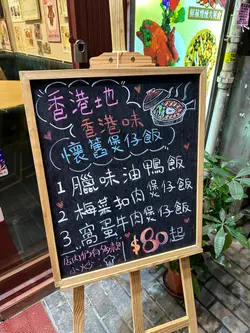 香港地
香港味
懷舊煲仔飯
1 臘味油鴨飯
2 梅菜扣肉煲仔飯
3. 窩蛋牛肉煲仔飯
$80起
小炒